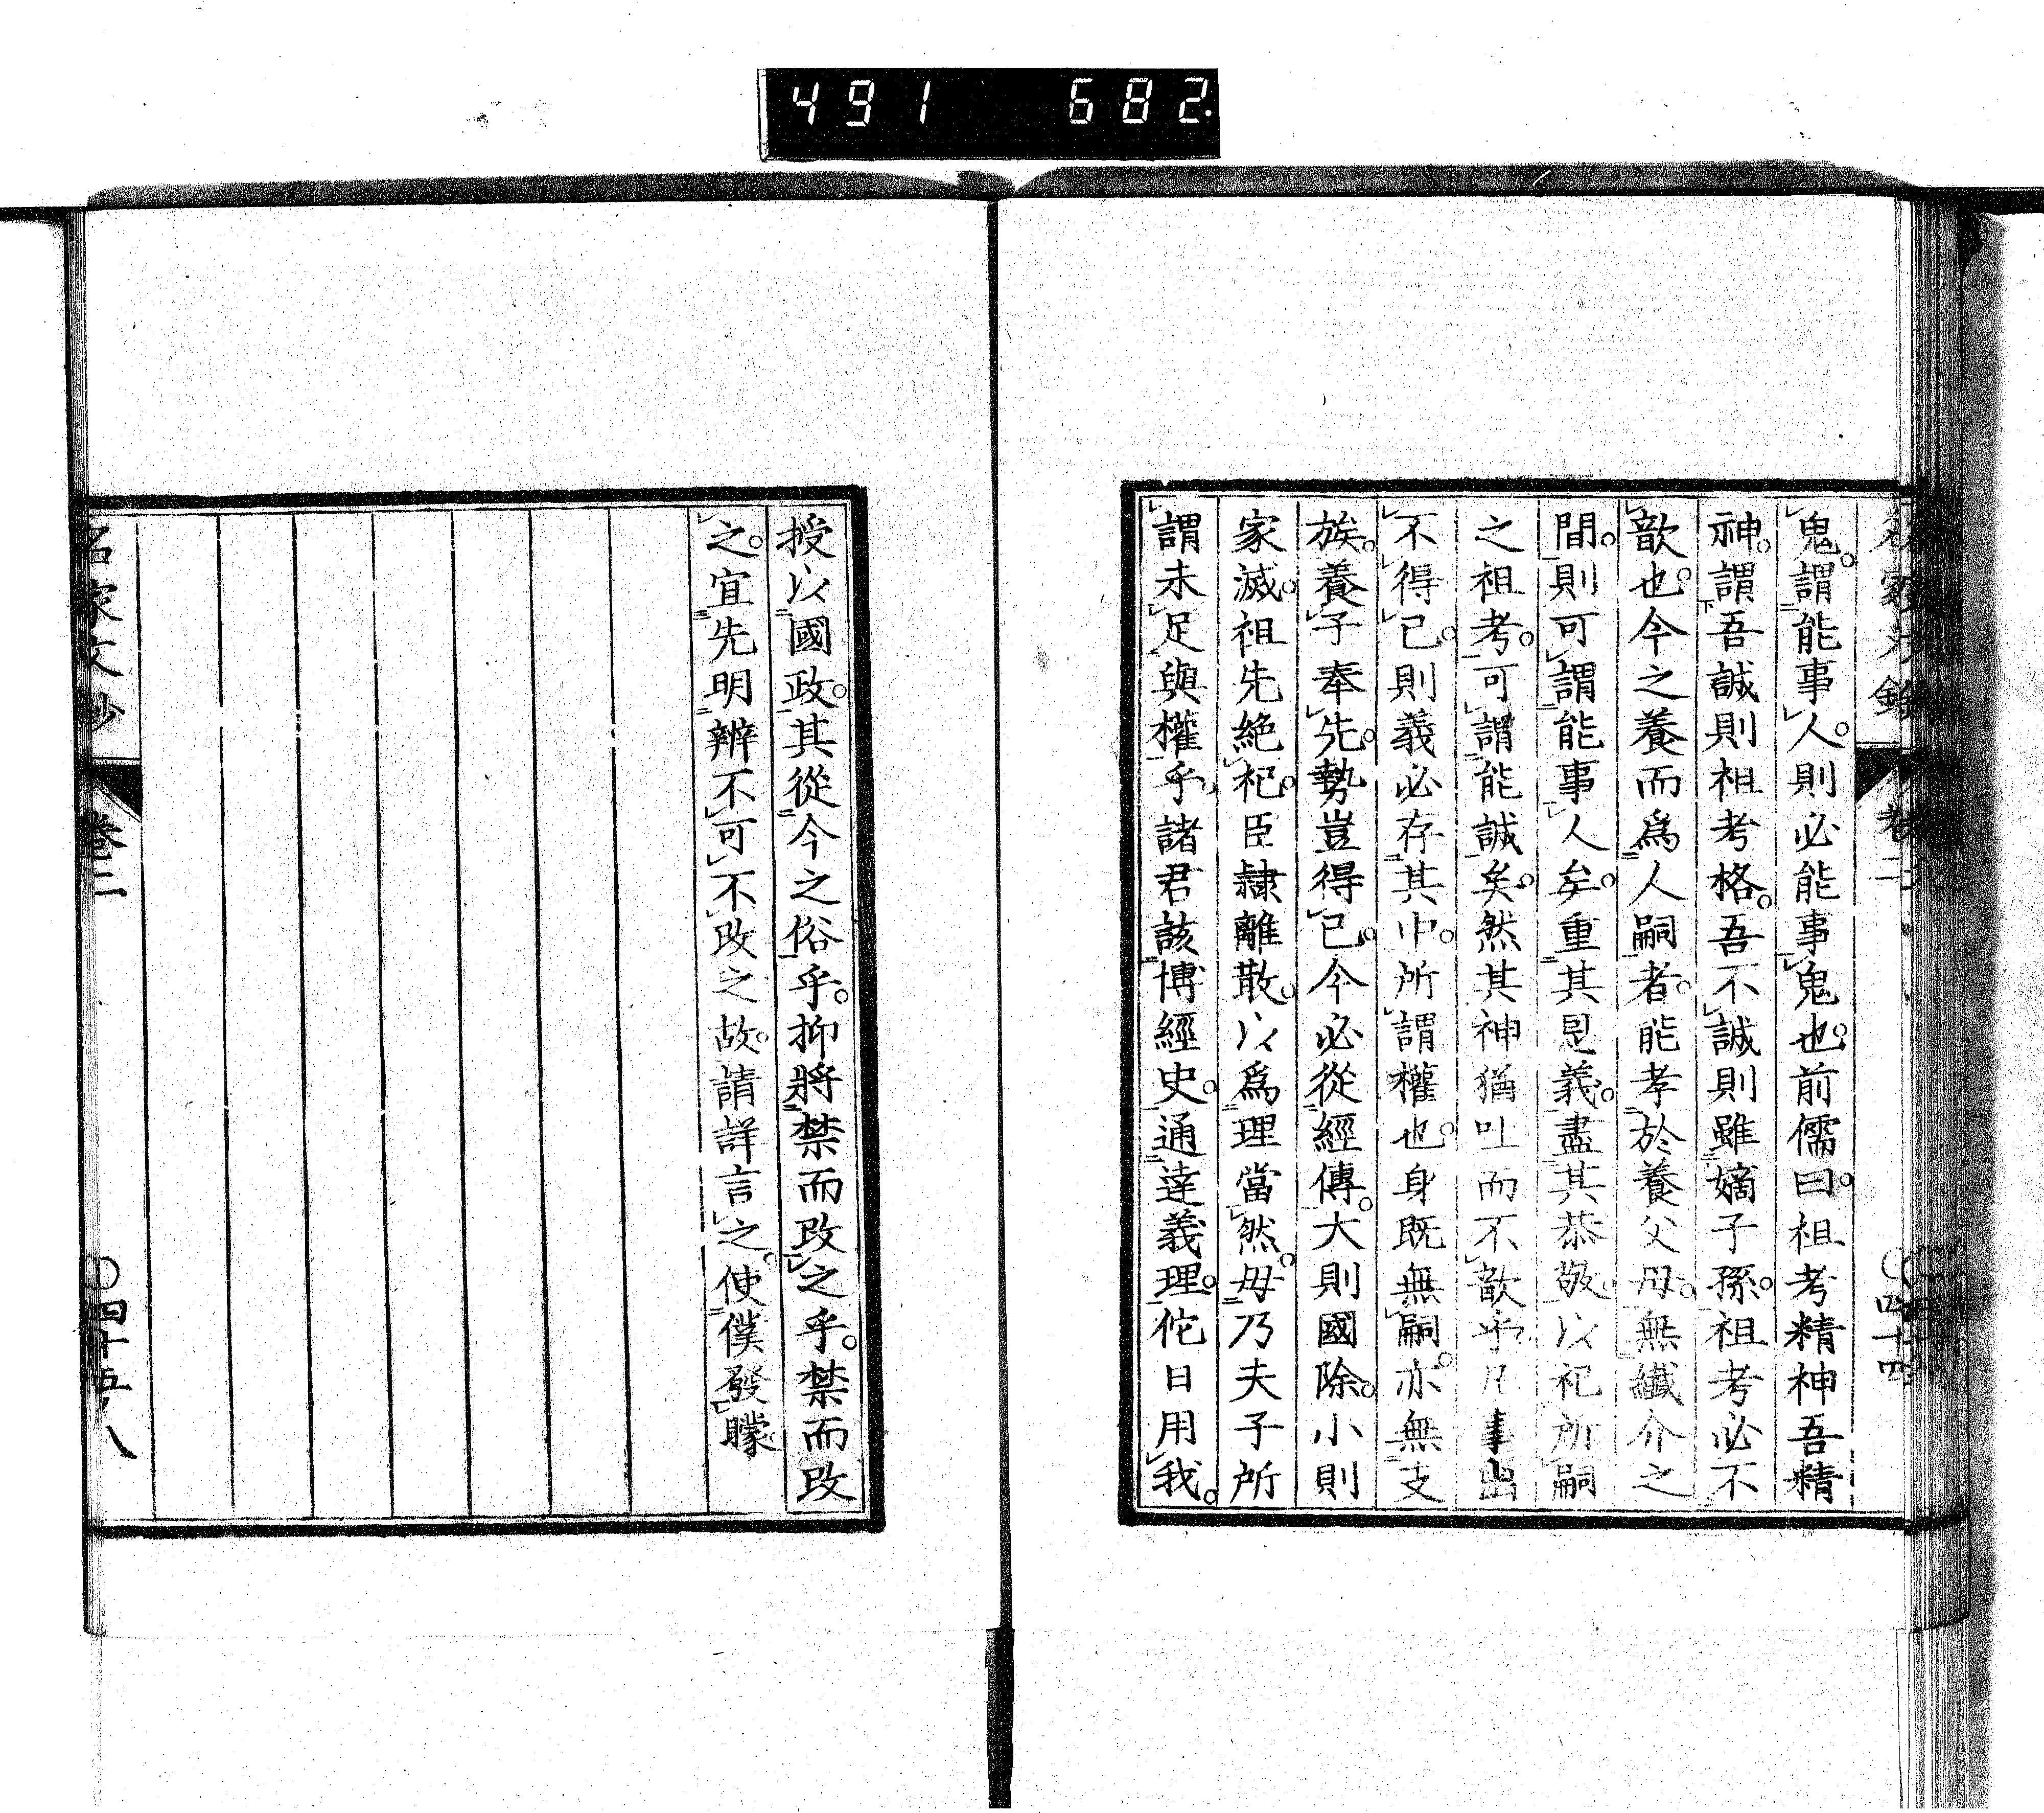 491 682
鬼。謂能事人。則必能事鬼也。前儒曰。祖考精神吾精
神。謂吾誠則祖考格。吾不誠則雖嫡子孫。祖考必不
歆也。今之養而爲人嗣者。能孝於養父母。無纖介之
間。則可謂能事人矣。重其恩義。盡其恭敬。以祀所嗣
之祖考。可謂能誠矣。然其神猶吐而不歆乎。凡事出
不得已。則義必存其中。所謂權也。身既無嗣。亦無支
族。養子奉先。勢豈得已。今必從經傳。大則國除。小則
家滅。祖先絶祀。臣隷離散。以爲理當然。毋乃夫子所
謂未足與權乎。諸君該博經史。通達義理。佗日用我。
卷二
〇四十四
授以國政。其從今之俗乎。抑將禁而改之乎。禁而改
之。宜先明辨不可不改之故。請詳言之。使僕發矇
名家文抄
卷二
〇四十五ノ八